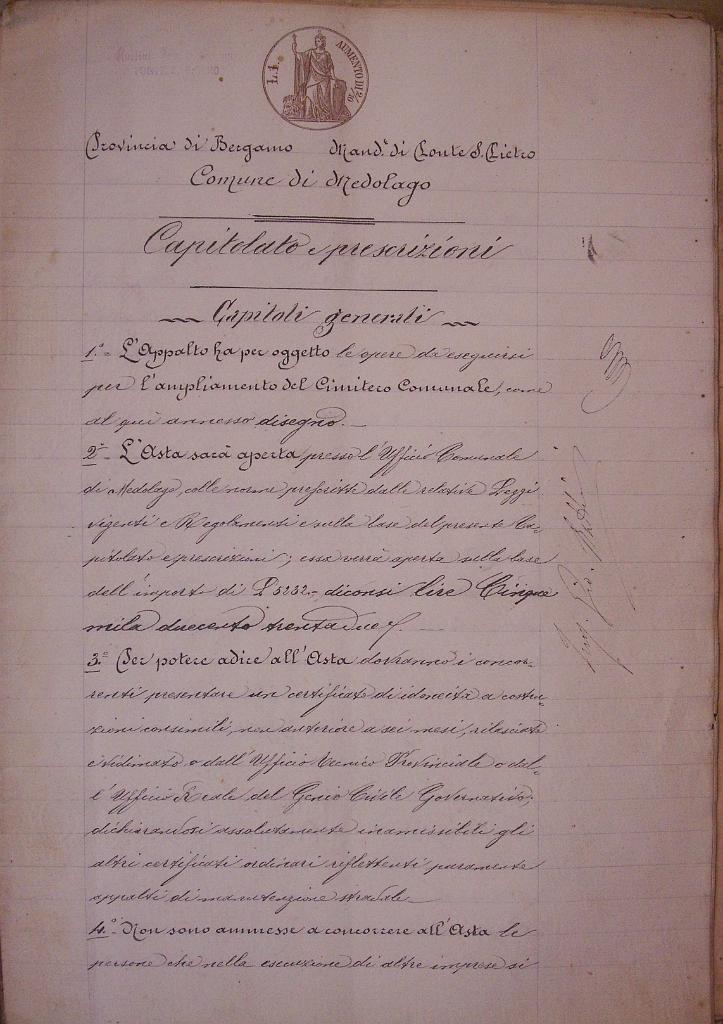 L.1. AUMENTO DI 2/10
Provincia di Bergamo Mand.º di Ponte S. Pietro
Comune di Medolago
Capitolato e prescrizioni
Capitoli generali
1.º- L'Appalto ha per oggetto le opere da eseguirsi
per l'ampliamento del Cimitero Comunale, come
al qui annesso disegno.-
2º- L'Asta sarà aperta presso l'Ufficio Comunale
di Medolago, colle norme prescritte dalle relative Leggi
vigenti e Regolamenti e sulla base del presente Ca-
pitolato e prescrizioni; essa verrà aperta sulla base
dell'importo di L 5232.- diconsi lire Cinque
mila duecento trentadue.-
3.º Per potere adire all'Asta dovranno i concor-
renti presentare un certificato di idoneità a costru-
zioni consimili, non anteriore a sei mesi, rilasciato
e vidimato o dall'Ufficio Tecnico Provinciale o dal-
l'Ufficio Reale del Genio Civile Governativo;
dichiarandosi assolutamente inamissibili gli
altri certificati ordinari riflettenti puramente
appalti di manutenzione stradale.
4.º- Non sono ammesse a concorrere all'Asta le
persone che nella esecuzione di altre imprese si